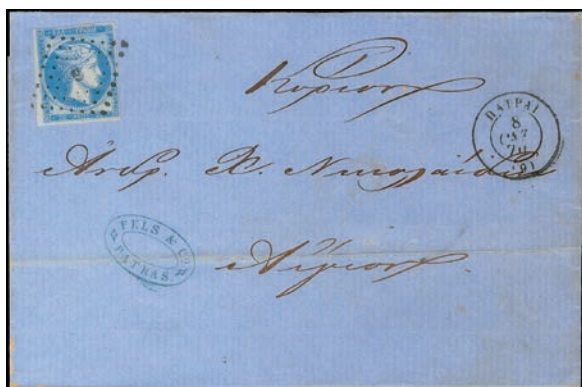 Κύριον
ΠΑΤΡΑΙ
8
70
(9)
Ἀνδρ. Χ. Νικολαΐδην
FELS & Co.
PATRAS
Αἴγιον